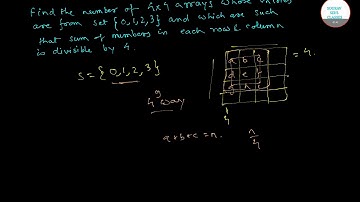 Find the number of 4x4 arrays whose entries
are from set {0,1,2,3} and which are such
that sum of numbers in each row & column
is divisible by 4.
S = {0,1,2,3}
a b c
d e f
g h i
= 4.
4^9 way
4
a+b+c = n.
n/4